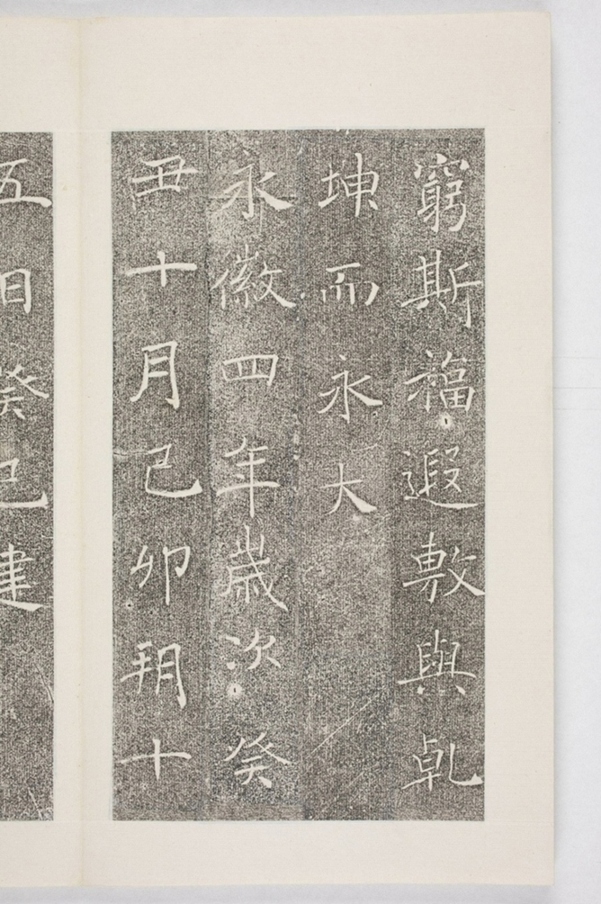 窮斯福遐敷與乹
坤而永大
永徽四年歲次癸
丑十月己卯朔十
五日癸巳建